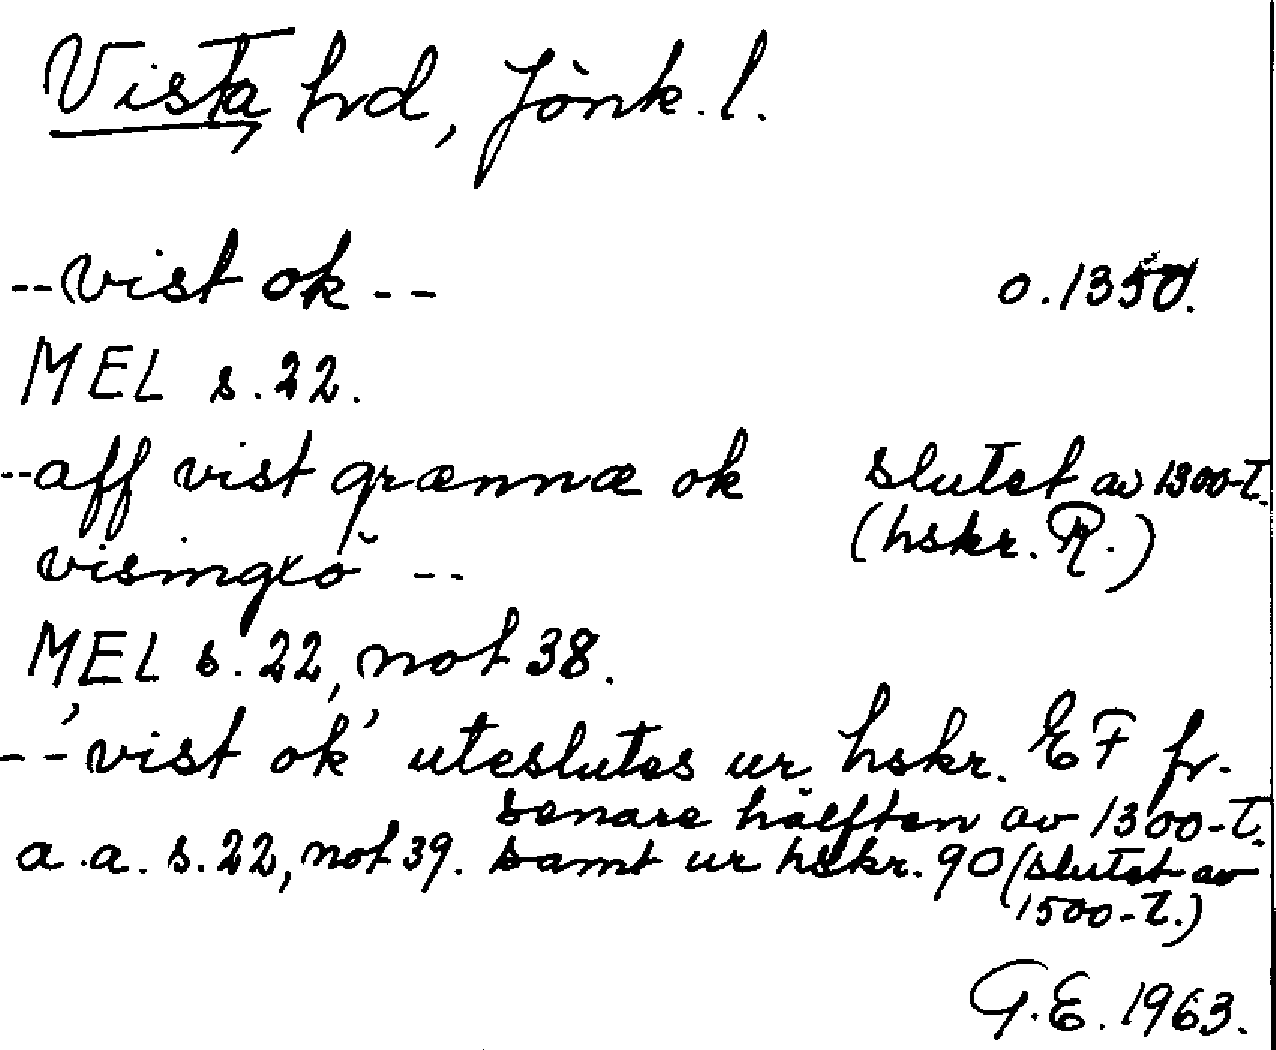 Vista hd, Jönk. l.
--vist ok-- o. 1350.
MEL s. 22.
--aff vist grænnæ ok slutet av 1300-t.
visingxö -- (hskr. R.)
MEL s. 22, not 38.
--'vist ok' uteslutes ur hskr. EF fr.
senare hälften av 1300-t.
a.a. s. 22, not 39. samt ur hskr. 90 (slutet av
1500-t.)
G.E. 1963.